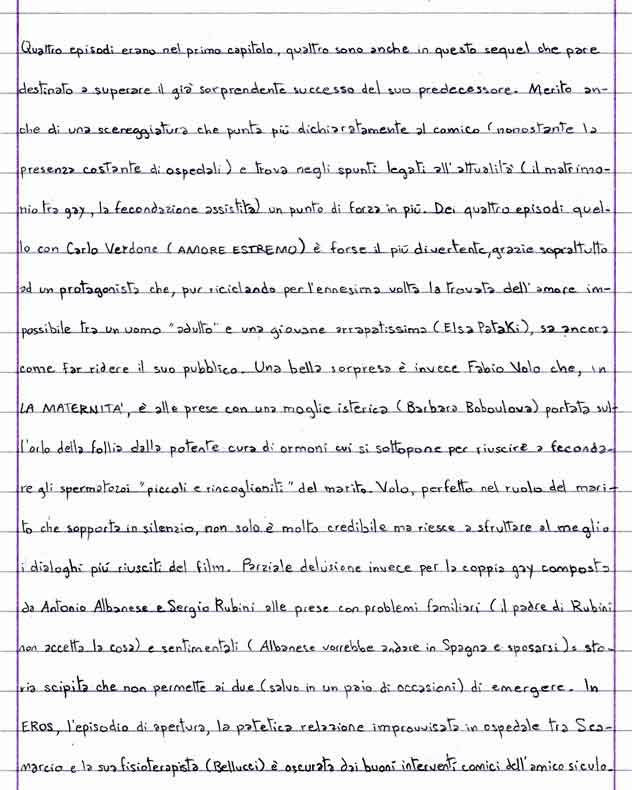 Quattro episodi erano nel primo capitolo, quattro sono anche in questo sequel che pare
destinato a superare il già sorprendente successo del suo predecessore. Merito an-
che di una scereggiatura che punta più dichiaratamente al comico (nonostante la
presenza costante di ospedali) e trova negli spunti legati all'attualità (il matrimo-
nio tra gay, la fecondazione assistita) un punto di forza in più. Dei quattro episodi quel-
lo con Carlo Verdone (AMORE ESTREMO) è forse il più divertente, grazie soprattutto
ad un protagonista che, pur riciclando per l'ennesima volta la trovata dell'amore im-
possibile tra un uomo "adulto" e una giovane arrapatissima (Elsa Pataki), sa ancora
come far ridere il suo pubblico. Una bella sorpresa è invece Fabio Volo che, in
LA MATERNITA', è alle prese con una moglie isterica (Barbara Boboulova) portata sul-
l'orlo della follia dalla potente cura di ormoni cui si sottopone per riuscire a feconda-
re gli spermatozoi "piccoli e rincoglioniti" del marito. Volo, perfetto nel ruolo del mari-
to che sopporta in silenzio, non solo è molto credibile ma riesce a sfruttare al meglio
i dialoghi più riusciti del film. Parziale delusione invece per la coppia gay composta
da Antonio Albanese e Sergio Rubini alle prese con problemi familiari (il padre di Rubini
non accetta la cosa) e sentimentali (Albanese vorrebbe andare in Spagna e sposarsi): sto-
ria scipita che non permette ai due (salvo in un paio di occasioni) di emergere. In
EROS, l'episodio di apertura, la patetica relazione improvvisata in ospedale tra Sca-
marcio e la sua fisioterapista (Bellucci) è oscurata dai buoni interventi comici dell'amico siculo.